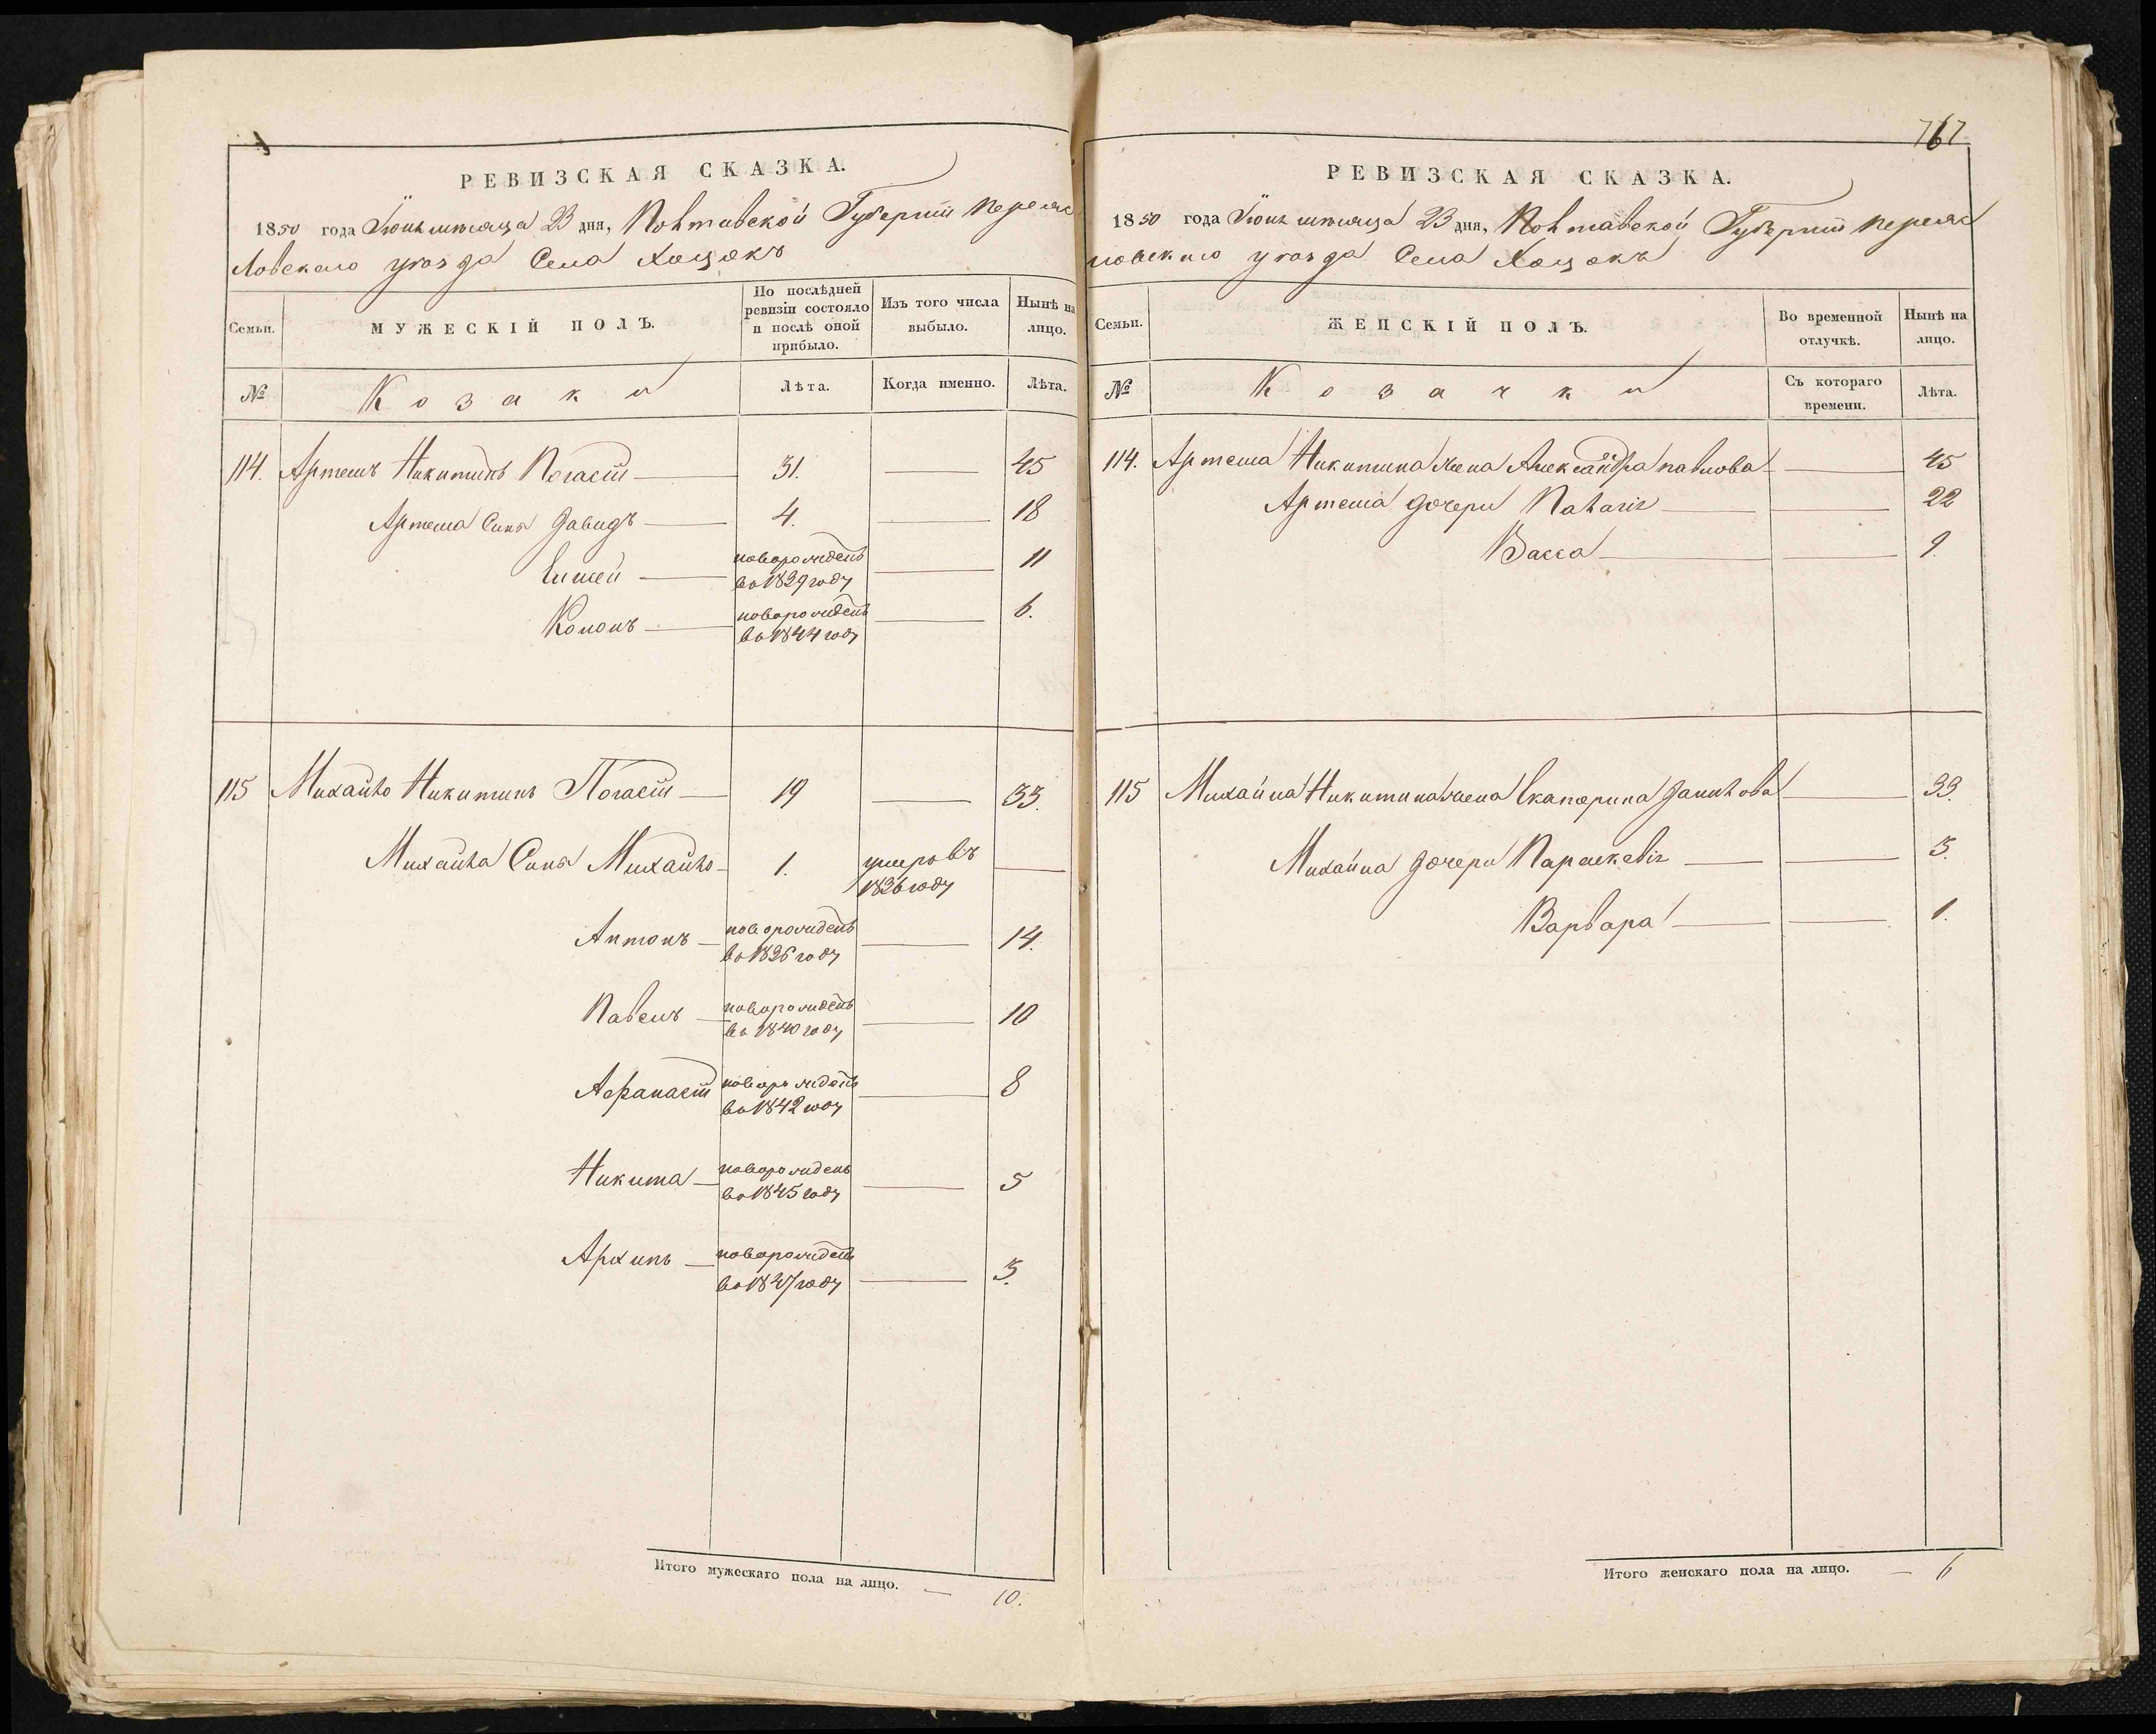 РЕВИЗСКАЯ СКАЗКА.
1850 года Іюнь месяца 23 дня, Полтавской Губерніи Переяс
ловскаго уезда Села Хоцокъ
Семьи.
МУЖЕСКІЙ ПОЛЪ.
По послѣдней ревизіи состояло и послѣ оной прибыло.
Изъ того числа выбыло.
Нынѣ на лицо.
№
Козаки
Лѣта.
Когда именно.
Лѣта.
114. Артемъ Никитинъ 31. 45
Артема Сынъ Давидъ 4. 18
Елисей новорожденъ во 1839 году 11
Кононъ новорожденъ во 1844 году 6.
115 Михайло Никитинъ 19 33.
Михайла Сынъ Михайло 1. умеръ въ 1836 году
Антонъ новорожденъ во 1836 году 14.
Павелъ новорожденъ во 1840 году 10
Афанасій новорожденъ во 1842 году 8
Никита новорожденъ во 1845 году 5
Архипъ новорожденъ во 1847 году 3.
Итого мужескаго пола на лицо. — 10.
767
РЕВИЗСКАЯ СКАЗКА.
1850 года Іюнь месяца 23 дня, Полтавской Губерніи Переяс
ловскаго уезда Села Хоцокъ
Семьи.
ЖЕНСКІЙ ПОЛЪ.
Во временной отлучкѣ.
Нынѣ на лицо.
№
Козачки
Съ котораго времени.
Лѣта.
114. Артема Никитина жена Александра Павлова 45
Артема дочери 22
Васса 9
115 Михайла Никитина жена Екатерина Данилова 33.
Михайла дочери Параскевія 3.
Варвара 1.
Итого женскаго пола на лицо. — 6